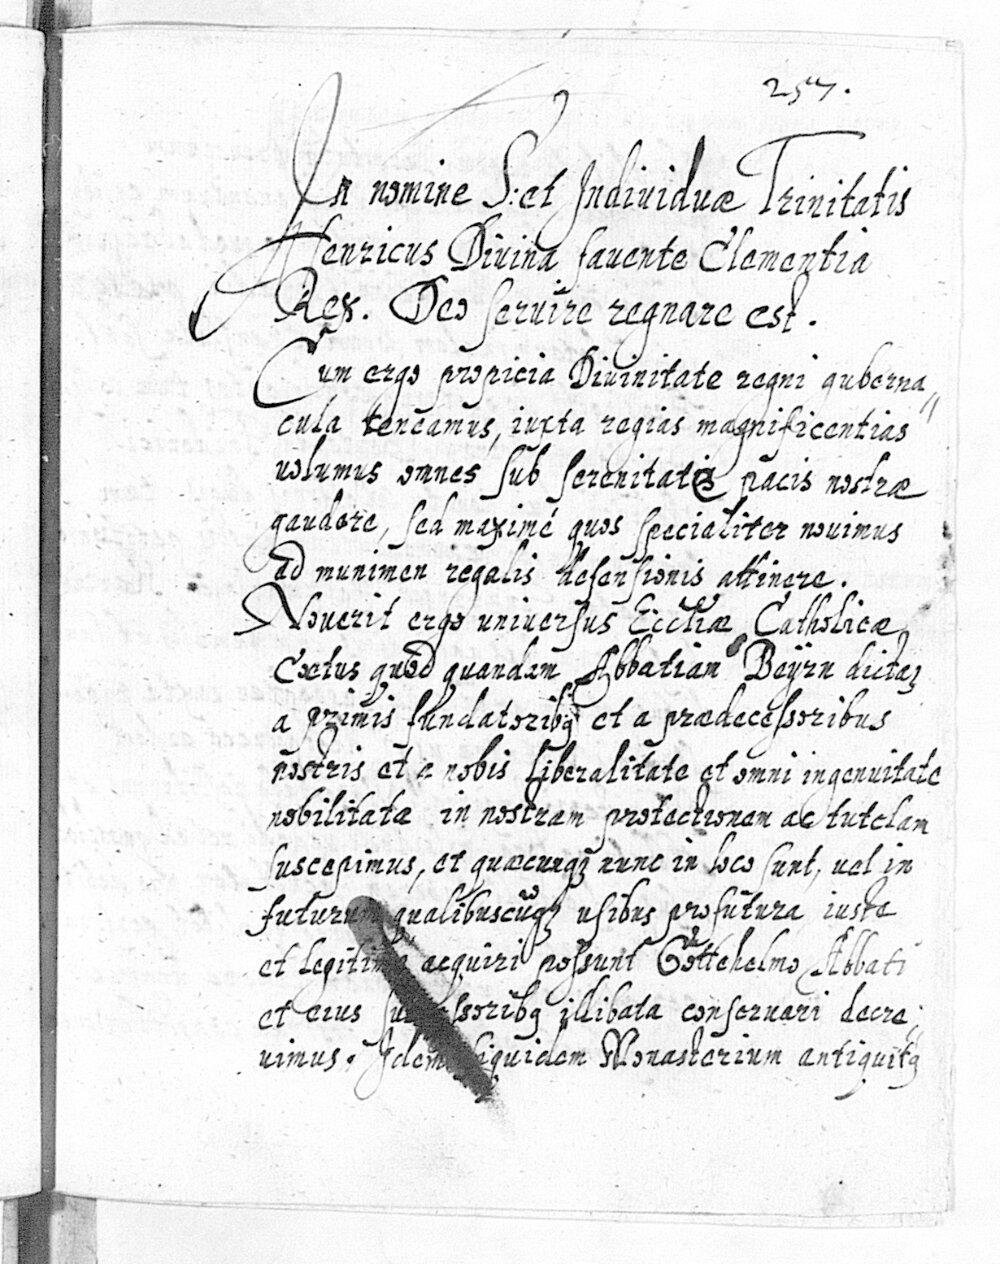 257.
In nomine S: et Individuæ Trinitatis
Henricus Divina favente Clementia
Rex. Deo servire regnare est.
Cum ergo propicia Divinitate regni guberna„
cula teneamus, iuxta regias magnificentias
volumus omnes sub serenitatis pacis nostræ
gaudere, sed maximé quos specialiter novimus
ad munimen regalis defensionis attinere.
Noverit ergo universus Eccliæ Catholicæ
Cœtus quod quandam Abbatiam Beÿrn dictaʒ
a primis fundatoribꝫ et a prædecessoribus
nostris et a nobis liberalitate et omni ingenuitate
nobilitata in nostram protectionem ac tutelam
suscepimus, et quæcunqꝫ nunc in loco sunt, vel in
futurum qualibuscūqꝫ usibus profutura iuste
et legitime acquiri possunt Gottehelmo Abbati
et eius successoribꝫ illibata conservari decre„
vimus. Idem siquidem Monasterium antiquitꝫ